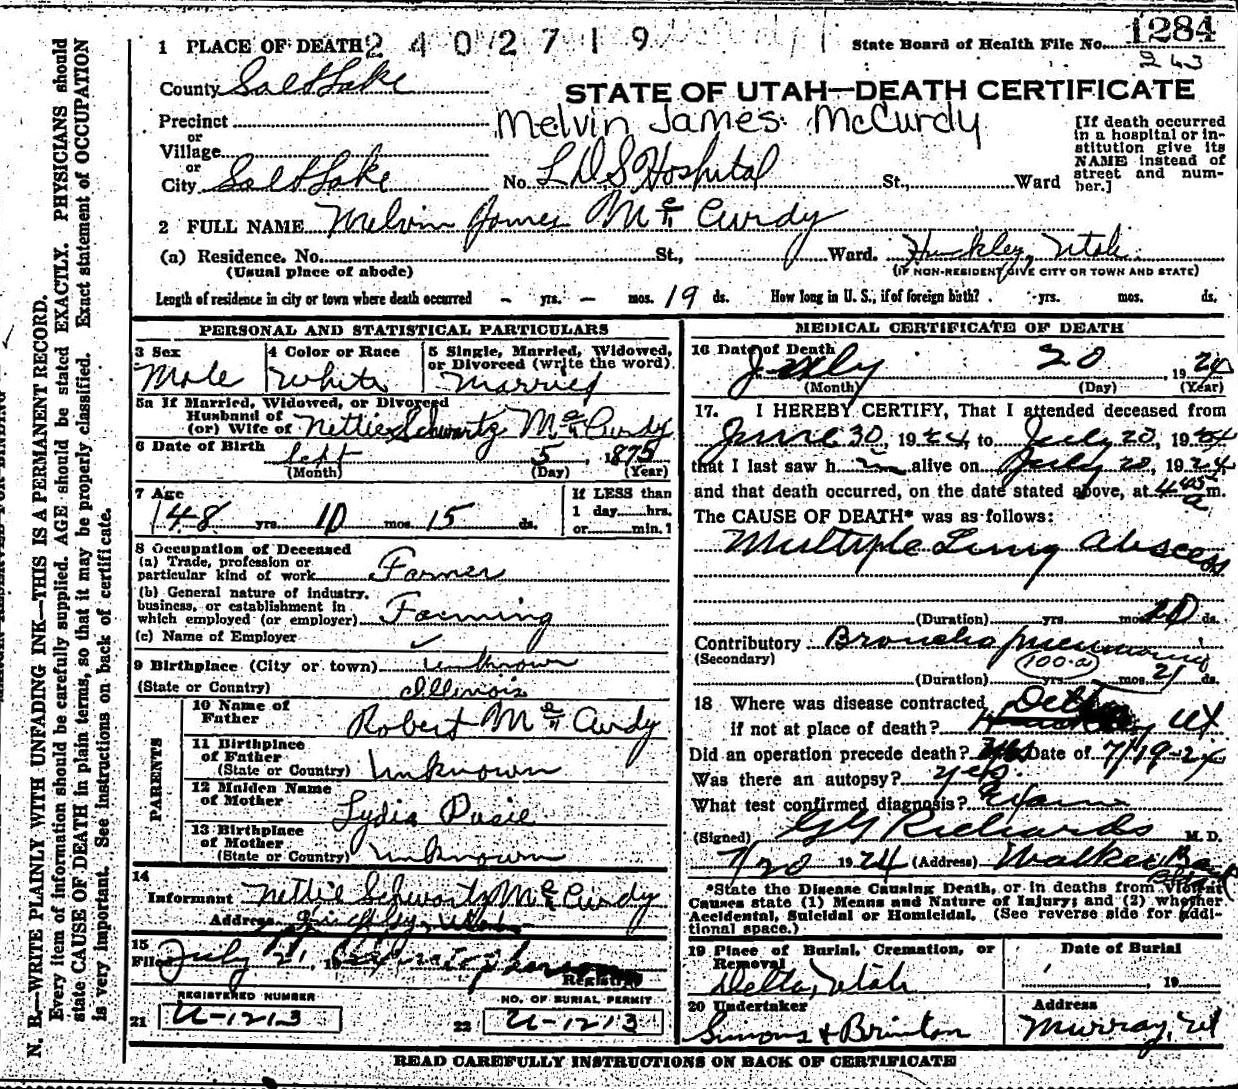 1 PLACE OF DEATH 2 4 0 2 7 1 9
State Board of Health File No. 1284
243
County Salt Lake
STATE OF UTAH—DEATH CERTIFICATE
Precinct
Melvin James McCurdy
or
Village
or
City Salt Lake No. LDS Hospital St., Ward
[If death occurred in a hospital or in-
stitution give its
NAME instead of
street and num-
ber.]
2 FULL NAME Melvin James McCurdy
(a) Residence. No. St., Ward. Hinckley, Utah.
(Usual place of abode) (IF NON-RESIDENT GIVE CITY OR TOWN AND STATE)
Length of residence in city or town where death occurred - yrs. - mos. 19 ds. How long in U. S., if of foreign birth? yrs. mos. ds.
PERSONAL AND STATISTICAL PARTICULARS
3 Sex
Male
4 Color or Race
White
5 Single, Married, Widowed,
or Divorced (write the word)
Married
5a If Married, Widowed, or Divorced
Husband of
(or) Wife of Nettie Schwartz McCurdy
6 Date of Birth Sept 5, 1875
(Month) (Day) (Year)
7 Age
48 yrs. 10 mos. 15 ds.
If LESS than
1 day hrs.
or min.
8 Occupation of Deceased
(a) Trade, profession or
particular kind of work Farmer
(b) General nature of industry,
business, or establishment in
which employed (or employer) Farming
(c) Name of Employer
9 Birthplace (City or town) unknown
(State or Country) Illinois
PARENTS
10 Name of
Father Robert McCurdy
11 Birthplace
of Father
(State or Country) Unknown
12 Maiden Name
of Mother Lydia
13 Birthplace
of Mother
(State or Country) unknown
14
Informant Nettie Schwartz McCurdy
Address Hinckley, Utah
15
Filed July 21, 19
Registrar
REGISTERED NUMBER
21 U-1213
NO. OF BURIAL PERMIT
22 U-1213
MEDICAL CERTIFICATE OF DEATH
16 Date of Death
July 20, 1924
(Month) (Day) (Year)
17. I HEREBY CERTIFY, That I attended deceased from
June 30, 1924 to July 20, 1924
that I last saw h im alive on July 20, 1924
and that death occurred, on the date stated above, at 4 45 a m.
The CAUSE OF DEATH* was as follows:
Multiple Lung Abscess
(Duration) yrs. mos. 20 ds.
Contributory Broncho pneumonia
(Secondary) (100-a)
(Duration) yrs. mos. 21 ds.
18 Where was disease contracted Delta
if not at place of death? Ut
Did an operation precede death? Yes Date of 7/19-24
Was there an autopsy? Yes.
What test confirmed diagnosis? Exam
(Signed) G G Richards M. D.
7/20 1924 (Address) Walker Bank
Bldg
*State the Disease Causing Death, or in deaths from Violent
Causes state (1) Means and Nature of Injury; and (2) whether
Accidental, Suicidal or Homicidal. (See reverse side for addi-
tional space.)
19 Place of Burial, Cremation, or
Removal
Delta, Utah
Date of Burial
, 19
20 Undertaker
Simons & Brinton
Address
Murray, Ut
READ CAREFULLY INSTRUCTIONS ON BACK OF CERTIFICATE
N. B.—WRITE PLAINLY WITH UNFADING INK—THIS IS A PERMANENT RECORD.
Every item of information should be carefully supplied. AGE should be stated EXACTLY. PHYSICIANS should
state CAUSE OF DEATH in plain terms, so that it may be properly classified. Exact statement of OCCUPATION
is very important. See instructions on back of certificate.